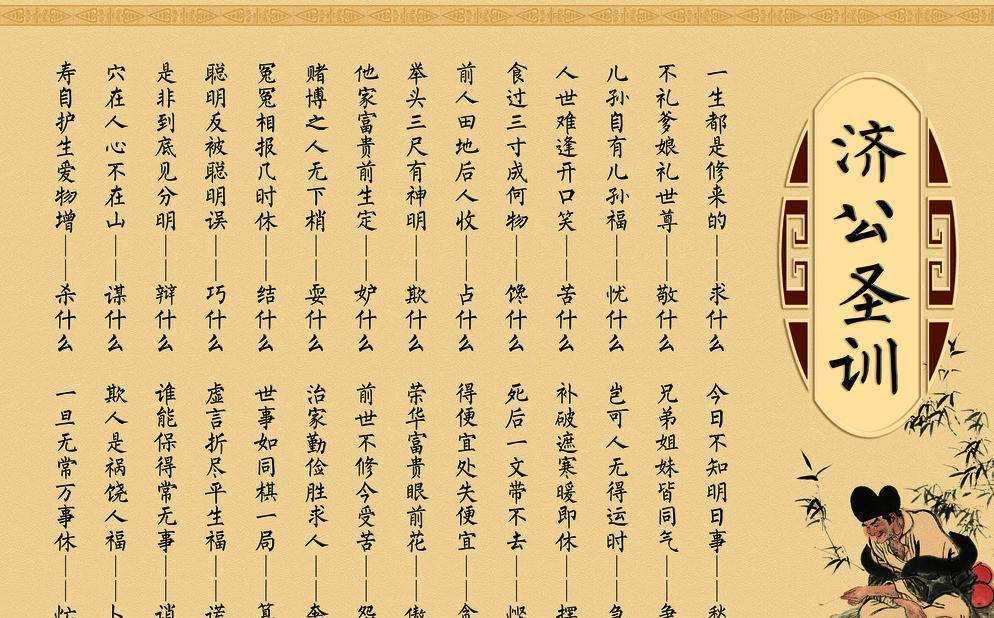 济公圣训
一生都是修来的——求什么 今日不知明日事——
不礼爹娘礼世尊——敬什么 兄弟姐妹皆同气——
儿孙自有儿孙福——忧什么 岂可人无得运时——
人世难逢开口笑——苦什么 补破遮寒暖即休——
食过三寸成何物——馋什么 死后一文带不去——
前人田地后人收——占什么 得便宜处失便宜——
举头三尺有神明——欺什么 荣华富贵眼前花——
他家富贵前生定——妒什么 前世不修今受苦——
赌博之人无下梢——耍什么 治家勤俭胜求人——
冤冤相报几时休——结什么 世事如同棋一局——
聪明反被聪明误——巧什么 虚言折尽平生福——
是非到底见分明——辩什么 谁能保得常无事——
穴在人心不在山——谋什么 欺人是祸饶人福——
寿自护生爱物增——杀什么 一旦无常万事休——